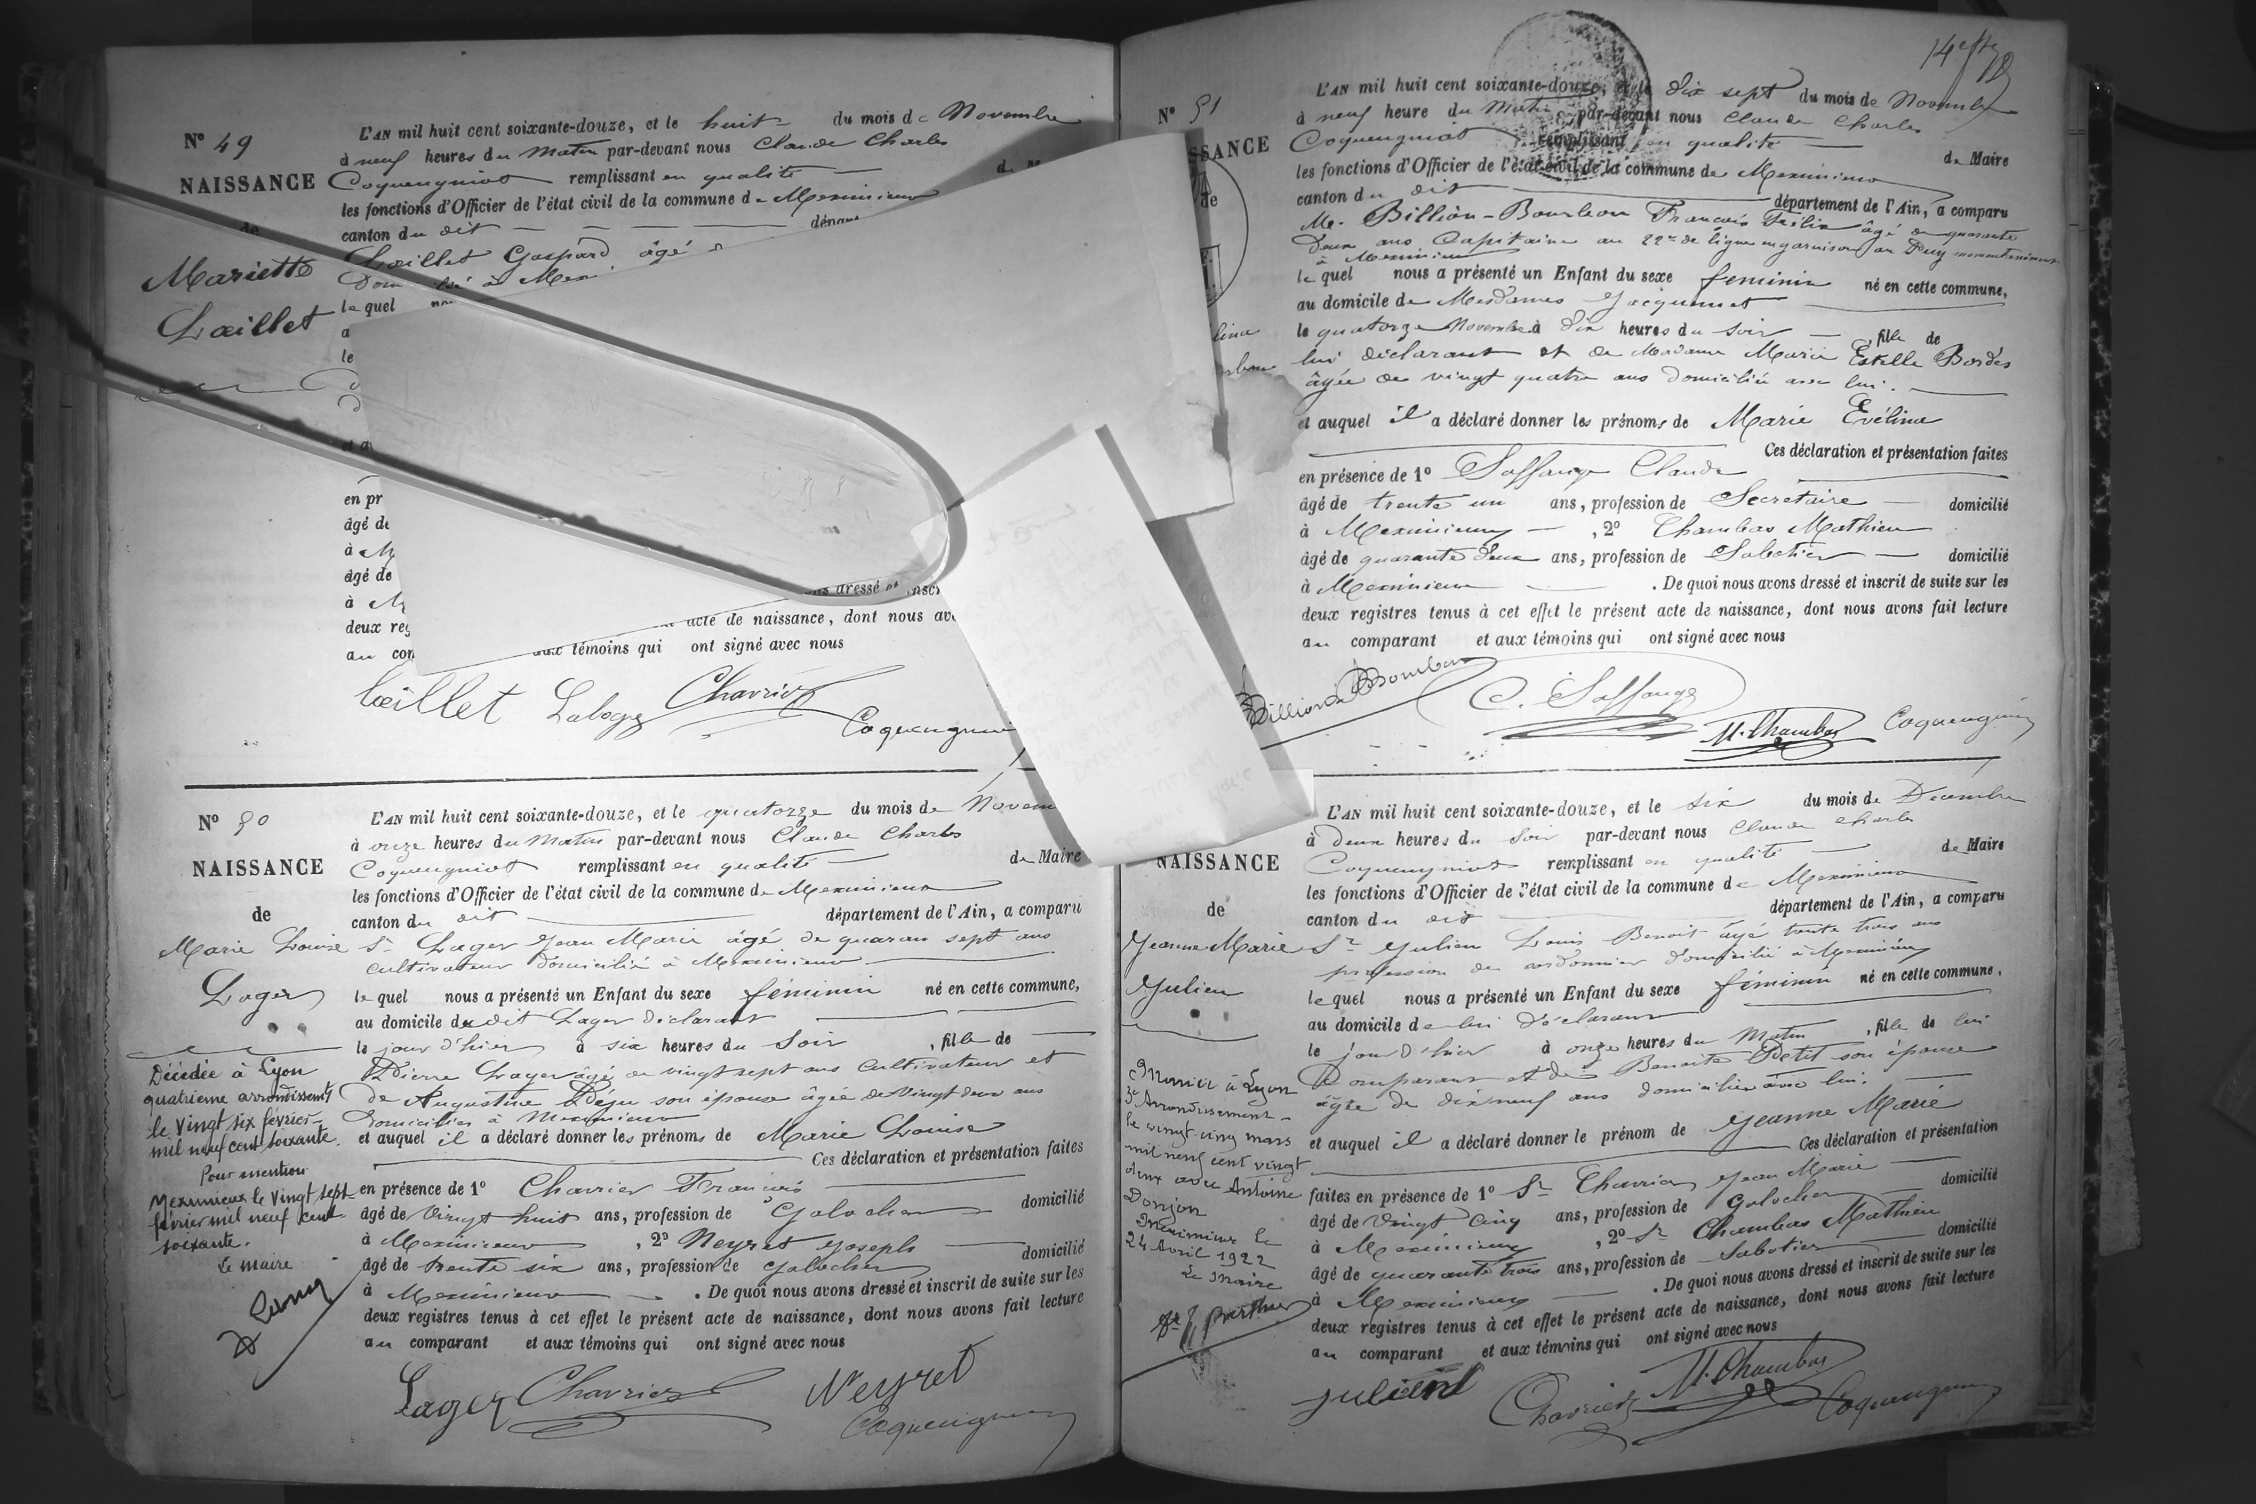 N° 49
NAISSANCE
de
Mariette
Lœillet
L'AN mil huit cent soixante-douze, et le huit du mois de Novembre
à neuf heures du Matin par-devant nous Claude Charles
Coquengniot remplissant en qualité
les fonctions d'Officier de l'état civil de la commune de Meximieux
canton du dit
Lœillet Gaspard âgé
le quel
a
le
en pr
âgé de
à M
âgé de
à M
deux reg
acte de naissance, dont nous av
au con
témoins qui ont signé avec nous
Lœillet Laboge Charrier
Coquengniot
N° 50
NAISSANCE
de
Marie Louise
Lager
Décédée à Lyon
quatrième arrondissement
le vingt six février
mil neuf cent soixante.
Pour mention
Meximieux le vingt sept
février mil neuf cent
soixante.
Le maire
L'AN mil huit cent soixante-douze, et le quatorze du mois de Novem
à onze heures du Matin par-devant nous Claude Charles
Coquengniot remplissant en qualité de Maire
les fonctions d'Officier de l'état civil de la commune de Meximieux
canton du dit département de l'Ain, a comparu
Sr Lager Jean Marie âgé de quaran sept ans
cultivateur domicilié à Meximieux
le quel nous a présenté un Enfant du sexe féminin né en cette commune,
au domicile du dit Lager déclarant
le jour d'hier à six heures du Soir, fille de
Pierre Lager âgé de vingt sept ans Cultivateur et
de Augustine son épouse âgée de vingt deux ans
domiciliés à Meximieux
et auquel il a déclaré donner les prénoms de Marie Louise
Ces déclaration et présentation faites
en présence de 1° Charrier François
âgé de vingt huit ans, profession de Galocher domicilié
à Meximieux, 2° Neyret Joseph
âgé de trente six ans, profession de galocher domicilié
à Meximieux. De quoi nous avons dressé et inscrit de suite sur les
deux registres tenus à cet effet le présent acte de naissance, dont nous avons fait lecture
au comparant et aux témoins qui ont signé avec nous
Lager Charrier Neyret
Coquengniot
N° 51
SSANCE
de
L'AN mil huit cent soixante-douze, et le dix sept du mois de Novembre
à neuf heure du Matin par-devant nous Claude Charles
Coquengniot remplissant en qualité de Maire
les fonctions d'Officier de l'état civil de la commune de Meximieux
canton du dit département de l'Ain, a comparu
Mr. Billion-Bourbon François Félix âgé de quarante
deux ans Capitaine au 22me de ligne en garnison au Puy momentanément
à Meximieux
le quel nous a présenté un Enfant du sexe féminin né en cette commune,
au domicile de Mesdames Jacquemet
le quatorze Novembre à dix heures du Soir, fille de
lui déclarant et de Madame Marie Estelle Bordes
âgée de vingt quatre ans domiciliée avec lui.
et auquel il a déclaré donner les prénoms de Marie Evéline
Ces déclaration et présentation faites
en présence de 1° Saffange Claude
âgé de trente un ans, profession de Secrétaire domicilié
à Meximieux, 2° Chambas Mathieu
âgé de quarante deux ans, profession de Sabotier domicilié
à Meximieux. De quoi nous avons dressé et inscrit de suite sur les
deux registres tenus à cet effet le présent acte de naissance, dont nous avons fait lecture
au comparant et aux témoins qui ont signé avec nous
Billion Bourbon C. Saffange
M. Chambas Coquengniot
NAISSANCE
de
Jeanne Marie
Julien
Mariée à Lyon
3e Arrondissement
le vingt cinq mars
mil neuf cent vingt
deux avec Antoine
Donjon
Meximieux le
24 Avril 1922
Le Maire
L'AN mil huit cent soixante-douze, et le six du mois de Décembre
à deux heures du Soir par-devant nous Claude Charles
Coquengniot remplissant en qualité de Maire
les fonctions d'Officier de l'état civil de la commune de Meximieux
canton du dit département de l'Ain, a comparu
Sr Julien Louis Benoit âgé trente trois ans
profession de cordonnier domicilié à Meximieux
le quel nous a présenté un Enfant du sexe féminin né en cette commune,
au domicile de lui déclarant
le jour d'hier à onze heures du Matin, fille de lui
Comparant et de Benoite Petit son épouse
âgée de dixneuf ans domiciliée avec lui.
et auquel il a déclaré donner le prénom de Jeanne Marie
Ces déclaration et présentation
faites en présence de 1° Sr Charrier Jean Marie
âgé de vingt cinq ans, profession de Galocher domicilié
à Meximieux, 2° Sr Chambas Mathieu
âgé de quarante trois ans, profession de Sabotier domicilié
à Meximieux. De quoi nous avons dressé et inscrit de suite sur les
deux registres tenus à cet effet le présent acte de naissance, dont nous avons fait lecture
au comparant et aux témoins qui ont signé avec nous
Julien Charrier M. Chambas Coquengniot